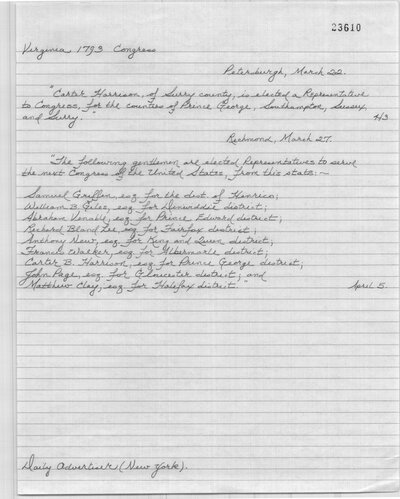 23610
Virginia 1793 Congress
Petersburgh, March 22.
"Carter Harrison, of Surry county, is elected a Representative
to Congress, for the counties of Prince George, Southampton, Sussex,
and Surry."
4/3
Richmond, March 27.
"The following gentlemen are elected Representatives to serve
the next Congress of the United States, from this state:~
Samuel Griffin, esq for the dist. of Henrico;
William B. Giles, esq for Dinwiddie district;
Abraham Venable, esq for Prince Edward district;
Richard Bland Lee esq for Fairfax district;
Anthony New, esq for King and Queen district;
Francis Walker, esq for Albemarle district;
Carter B. Harrison, esq for Prince George district;
John Page, esq for Gloucester district; and
Matthew Clay, esq for Halifax district."
April 5.
Daily Advertiser (New York).